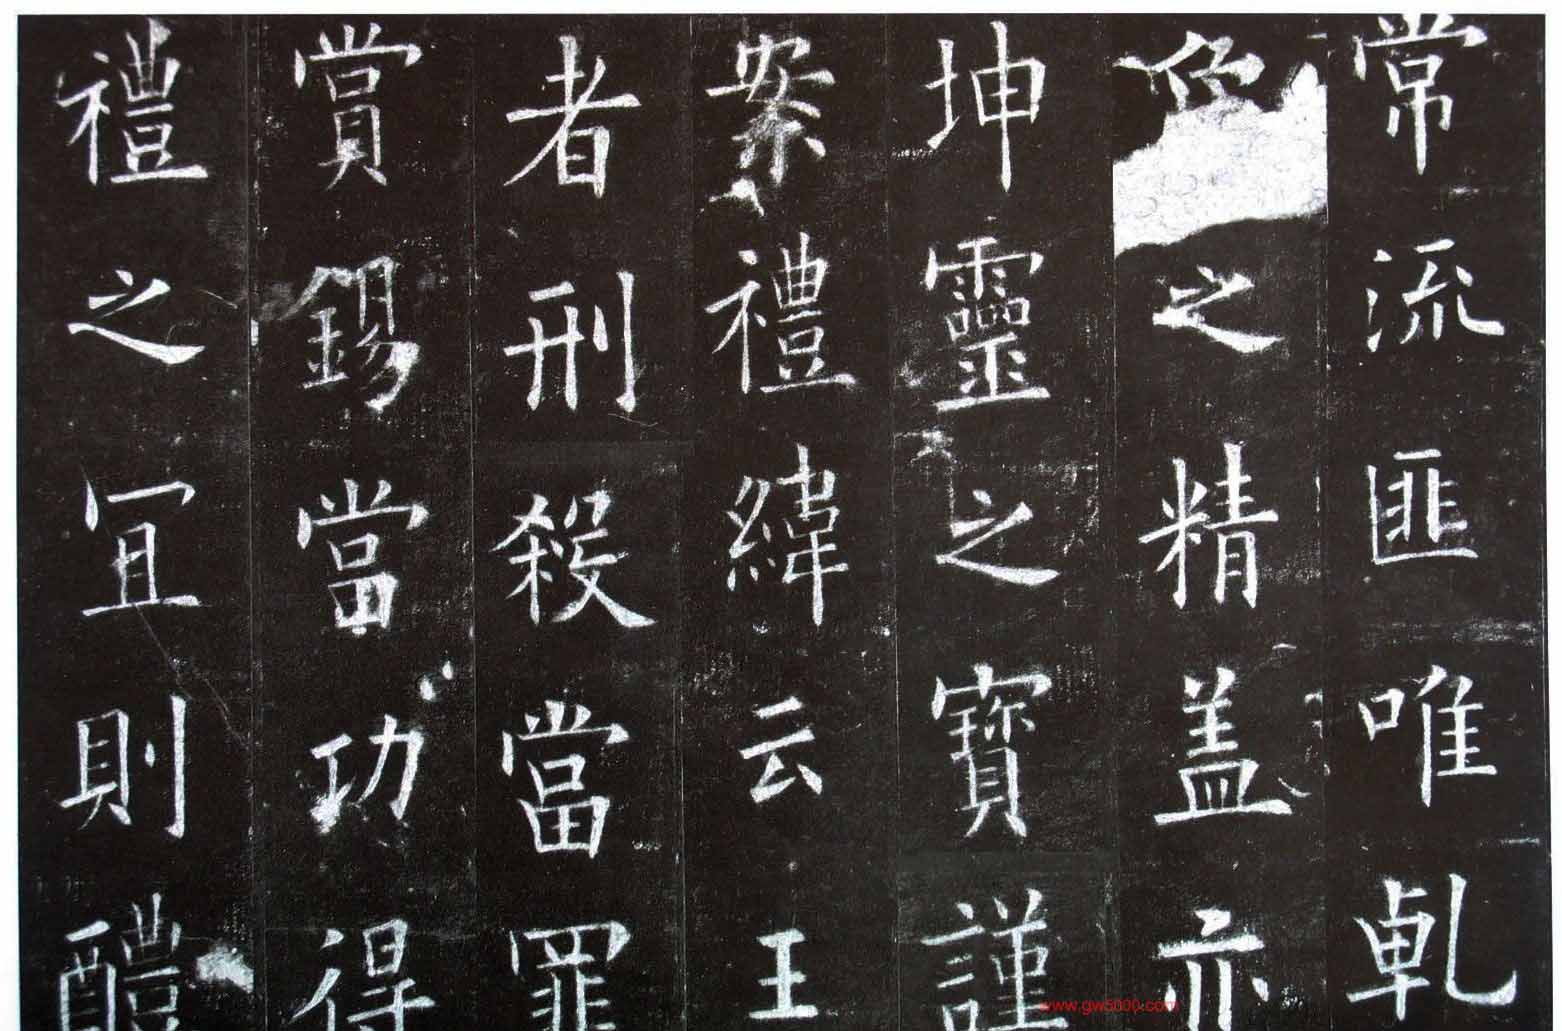 常流匪唯乹
象之精盖亦
坤靈之寶謹
案禮緯云王
者刑殺當罪
賞錫當功得
禮之冝則醴
www.gw5000.com